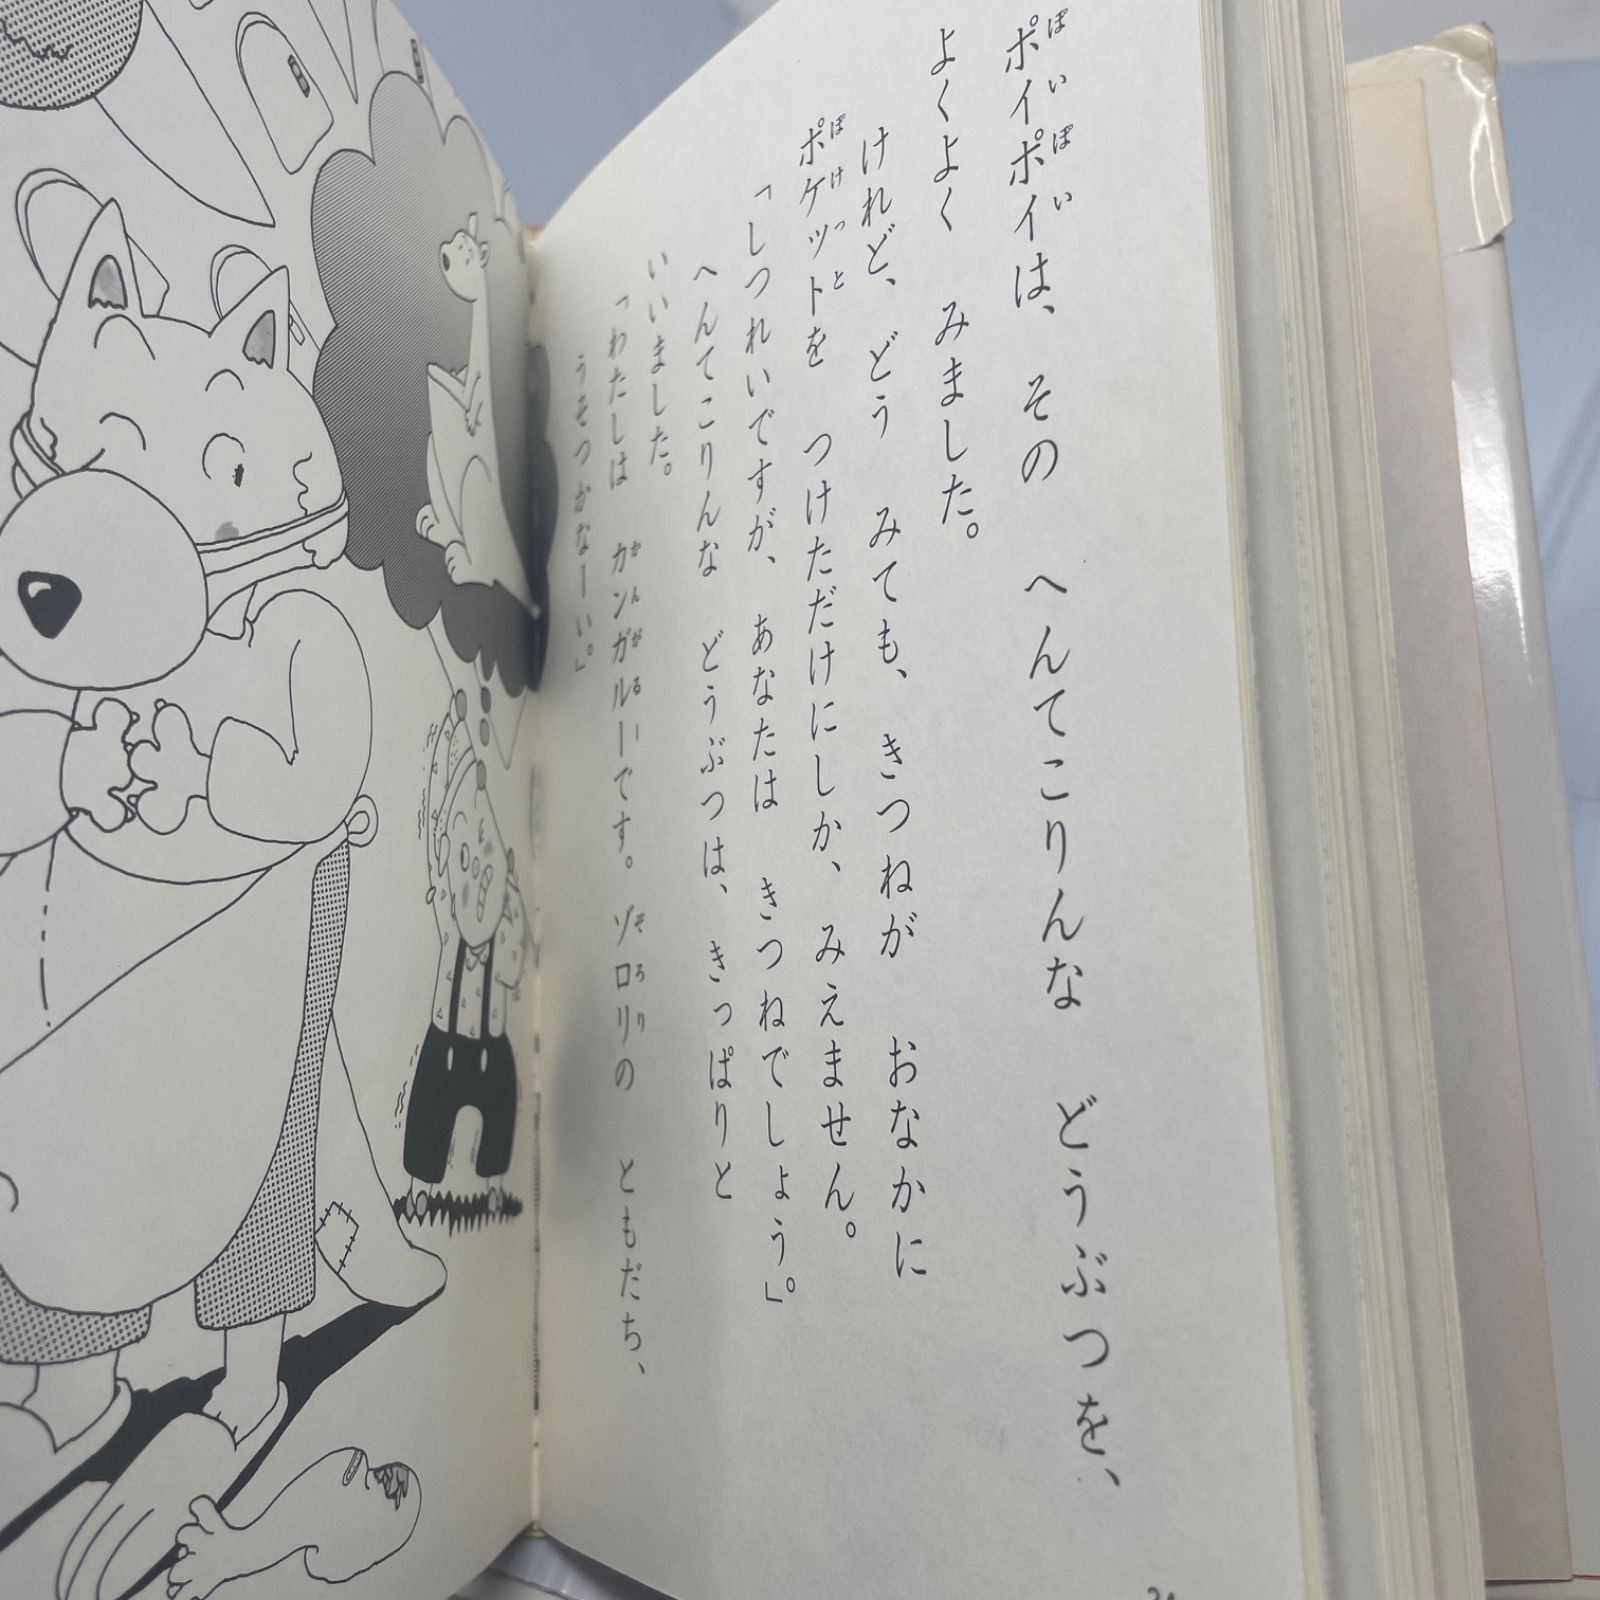 ポイポイは、その へんてこりんな どうぶつを、
よくよく みました。
けれど、どう みても、きつねが おなかに
ポケットを つけただけにしか、みえません。
「しつれいですが、あなたは きつねでしょう」。
へんてこりんな どうぶつは、きっぱりと
いいました。
「わたしは カンガルーです。ゾロリの ともだち、
うそつかなーい。」